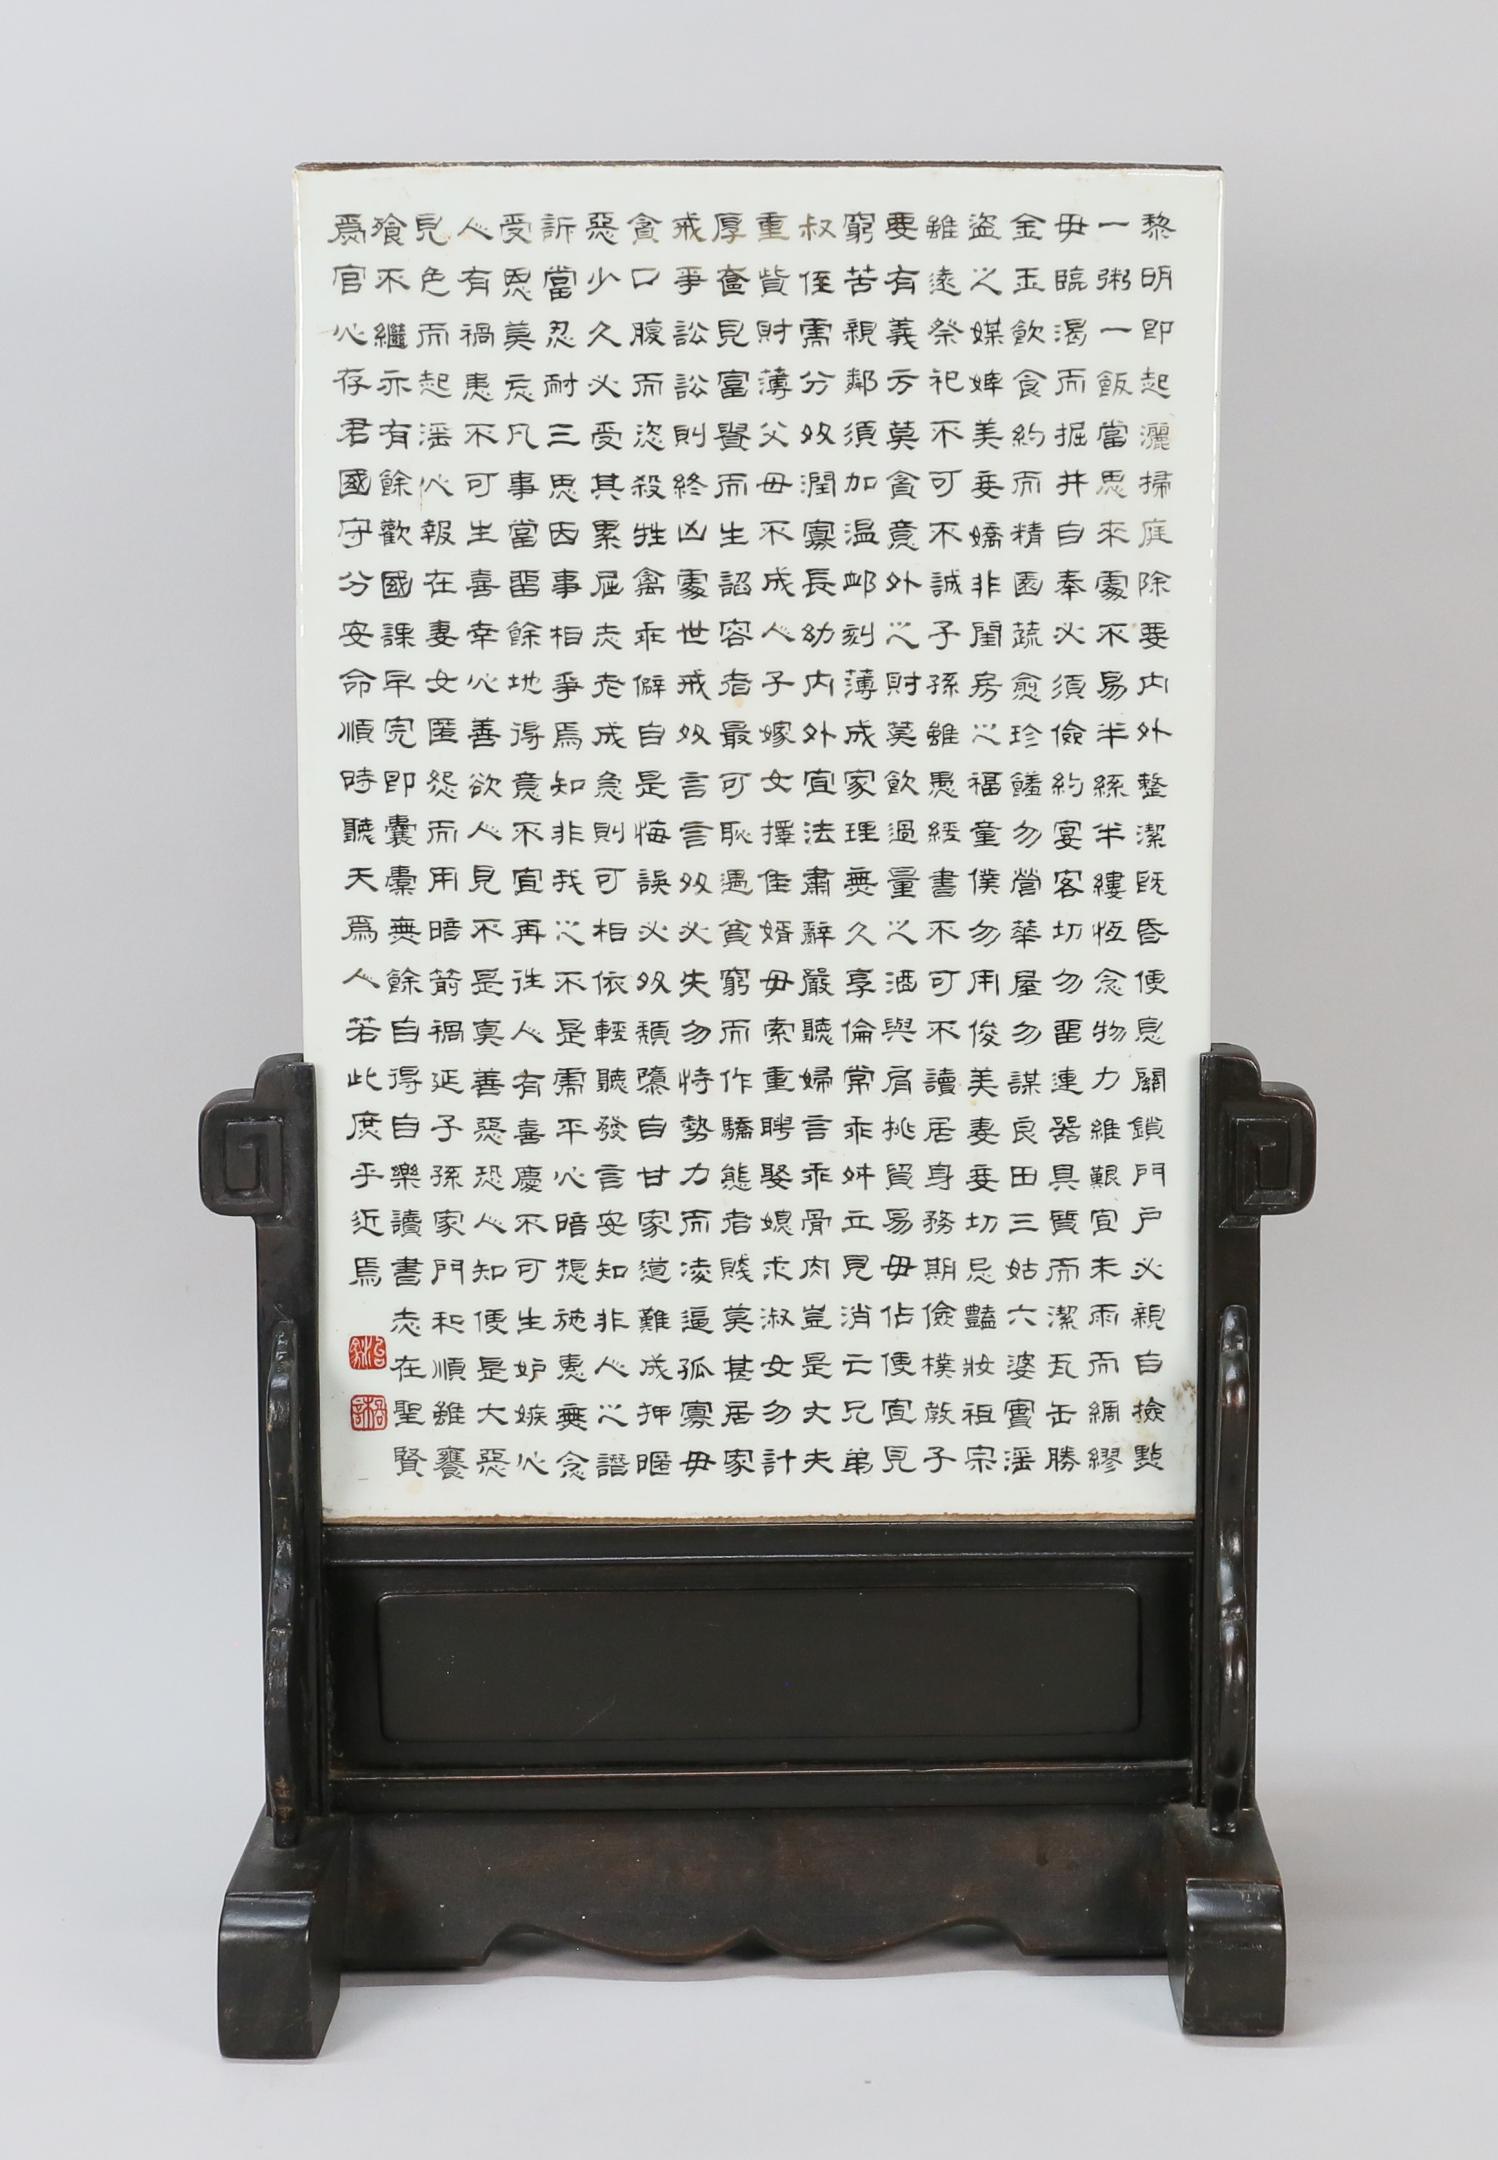 黎明即起灑掃庭除要内外整潔既昏便息關鎖門户必親自撿點
一粥一飯當思來處不易半絲半縷恆念物力維艱宜未雨而綢繆
毋臨渴而掘井自奉必須儉約宴客切勿留連器具質而潔瓦缶勝
金玉飲食約而精園蔬愈珍饈勿營華屋勿謀良田三姑六婆實淫
盜之媒婢美妾嬌非閨房之福童僕勿用俊美妻妾切忌豔妝祖宗
雖遠祭祀不可不誠子孫雖愚經書不可不讀居身務期儉樸教子
要有義方莫貪意外之財莫飲過量之酒與肩挑貿易毋佔便宜見
窮苦親鄰須加温卹刻薄成家理無久享倫常乖舛立見消亡兄弟
叔侄需分多潤寡長幼内外宜法肅辭嚴聽婦言乖骨肉豈是丈夫
重貲財薄父母不成人子嫁女擇佳婿毋索重聘娶媳求淑女勿計
厚奩見富貴而生諂容者最可恥遇貧窮而作驕態者賤莫甚居家
戒爭訟訟則終凶處世戒多言言多必失勿恃勢力而凌逼孤寡毋
貪口腹而恣殺牲禽乖僻自是悔誤必多頹隳自甘家道難成押暱
惡少久必受其累屈志老成急則可相依輕聽發言安知非人之譖
訴當忍耐三思因事相爭焉知非我之不是需平心暗想施惠無念
受恩莫忘凡事當留餘地得意不宜再往人有喜慶不可生妒嫉心
人有禍患不可生喜幸心善欲人見不是真善惡恐人知便是大惡
見色而起淫心報在妻女匿怨而用暗箭禍延子孫家門和順雖饔
飧不繼亦有餘歡國課早完即囊橐無餘自得自樂讀書志在聖賢
爲官心存君國守分安命順時聽天爲人若此庶乎近焉